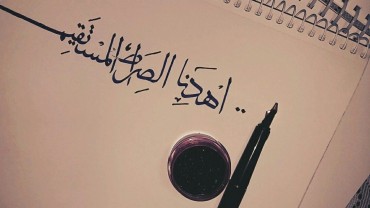 .. اهدنا الصراط المستقيم